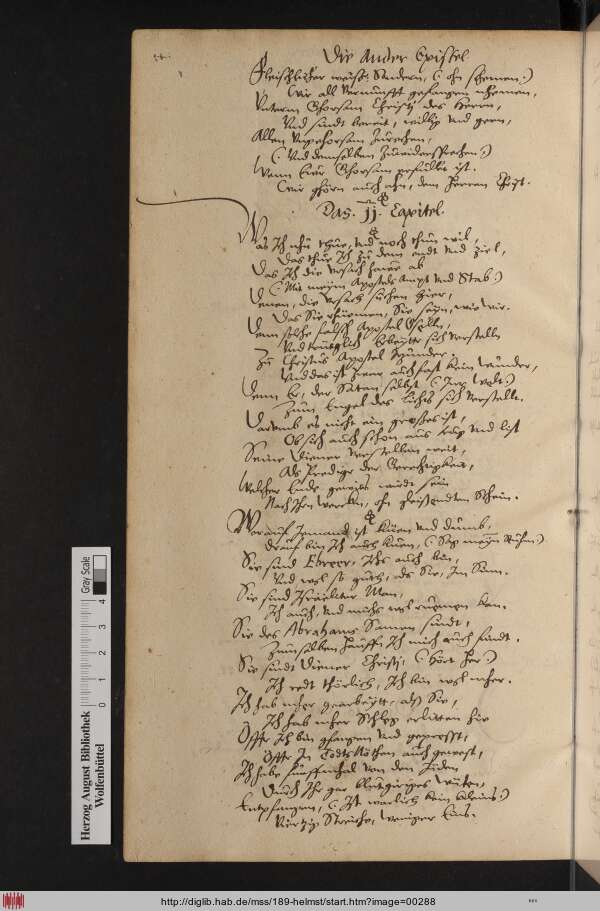 Die Ander Epistel
Fleischlicher weiß: Sondern, (: ohn schemen:)
Wir all Vernunfft gefangen nhemen,
Unterm Ghorsam Christj des Herrn,
Und sindt bereit, willig und gern,
Allen Ungehorsam Zurechen,
(: Und demselben Zuwidersprechen:)
Wenn Ewr Ghorsam erfullet ist.
wir ghörn auch ahn, dem Herren Christ.
Das. jj. Capitel.
Was Ich nhu thue, und noch thun wil,
Das thue Ich zu dem endt und ziel,
Das Ich die Ursach hawe ab
(: Mit meym Apostels Ampt und Stab:)
Denen, die Ursach suchen hier,
Das Sie rhüemen, Sie seyn, wie wir.
Denn solche falsch Apostel Gselln,
Und trieglich Erbeiter sich verstelln
Zu Christus Apostel
Und das ist Zwar auch fast kein wunder,
Denn Er, der Satan selbst (: Inn Welt:)
Zum Engel des Liechts sich verstellt.
Darumb es nicht ein grosses ist,
Ob sich auch schon aus trug und list
Seine Diener verstellen weit,
Als Prediger der Gerechtigkeit,
Welcher Ende gewiß wirdt sein
Nach Ihrn wercken, ohn gleissendten Schein.
Worauf Jemandt ist kuen und dumb,
Drauf bin Ich auch kuen, (: meyn Ruhm:)
Sie sind Ebreer, Ichs auch bin,
Und wol so guth, als Sie, Im Sinn.
Sie sind Israeliter Man,
Ich auch, und michs wol ruemen kan.
Sie des Abrahams Samen sindt,
Zum selben Hauff, Ich mich auch findt.
Sie sindt Diener Christj, (: hört her:)
Ich redt thörlich, Ich bin wol mher.
Ich hab mher gearbeytt, alß Sie,
Ich hab mher Schleg erlitten hie
Offter Ich bin gfangen und geprest,
Offt In Todts Nöthen auch gewest,
Ich habe funffmhal von den Jüden
Durch Ihr gar blutgiriges wüten,
Entpfangen, (: Ist warlich kein kleins:)
Viertzig Streiche, weniger Eins.
Gray Scale
0 1 2 3 4
Herzog August Bibliothek
Wolfenbüttel
http://diglib.hab.de/mss/189-helmst/start.htm?image=00288